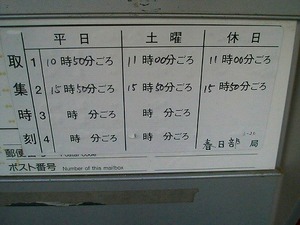 平日 土曜 休日
取 1 10時50分ごろ 11時00分ごろ 11時00分ごろ
集 2 15時50分ごろ 15時50分ごろ 15時50分ごろ
時 3 時 分ごろ 時 分ごろ
刻 4 時 分ごろ 時 分ごろ 春日部 局
郵便
ポスト番号 Number of this mailbox